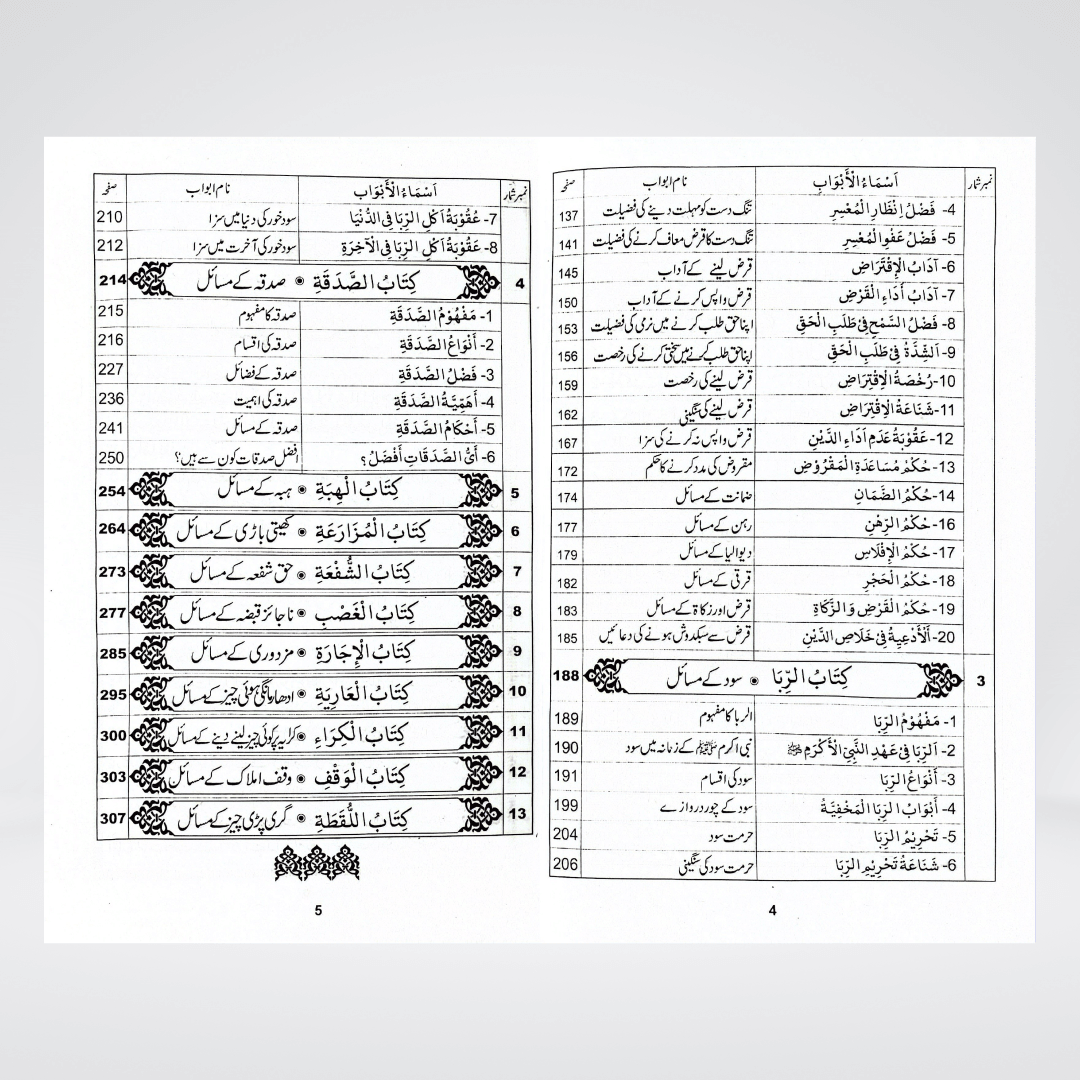 نمبر شمار اَسْمَاءُ الْاَبْوَابِ نام ابواب صفحہ
4- فَضْلُ اِنْظَارِ الْمُعْسِرِ تنگ دست کو مہلت دینے کی فضیلت 137
5- فَضْلُ عَفْوِ الْمُعْسِرِ تنگ دست کا قرض معاف کرنے کی فضیلت 141
6- آدَابُ الْاِقْتَرَاضِ قرض لینے کے آداب 145
7- آدَابُ أَدَاءِ الْقَرْضِ قرض واپس کرنے کے آداب 150
8- فَضْلُ السَّمْحِ فِيْ طَلَبِ الْحَقِّ اپنا حق طلب کرنے میں نرمی کی فضیلت 153
9- اَلشِّدَّةُ فِيْ طَلَبِ الْحَقِّ اپنا حق طلب کرنے میں سختی کرنے کی رخصت 156
10- رُخْصَةُ الْاِقْتِرَاضِ قرض لینے کی رخصت 159
11- شَنَاعَةُ الْاِقْتِرَاضِ قرض لینے کی سنگینی 162
12- عَقُوْبَةُ عَدَمِ اَدَاءِ الدَّيْنِ قرض واپس نہ کرنے کی سزا 167
13- حُكْمُ مُسَاعَدَةِ الْمَقْرُوْضِ مقروض کی مدد کرنے کا حکم 172
14- حُكْمُ الضَّمَانِ ضمانت کے مسائل 174
16- حُكْمُ الرِّهْنِ رہن کے مسائل 177
17- حُكْمُ الْاِفْلَاسِ دیوالیا کے مسائل 179
18- حُكْمُ الْحَجْرِ قرقی کے مسائل 182
19- حُكْمُ الْقَرْضِ وَالزَّكَاةِ قرض اور زکاۃ کے مسائل 183
20- اَلْأَدْعِيَةُ فِيْ خَلَاصِ الدَّيْنِ قرض سے سبکدوش ہونے کی دعائیں 185
3 كِتَابُ الرِّبَا ● سود کے مسائل 188
1- مَفْهُوْمُ الرِّبَا الربا کا مفہوم 189
2- اَلرِّبَا فِيْ عَهْدِ النَّبِيِّ الْأَكْرَمِ ﷺ نبی اکرم ﷺ کے زمانہ میں سود 190
3- أَنْوَاعُ الرِّبَا سود کی اقسام 191
4- أَبْوَابُ الرِّبَا الْمَخْفِيَّةُ سود کے چور دروازے 199
5- تَحْرِيْمُ الرِّبَا حرمت سود 204
6- شَنَاعَةُ تَحْرِيْمِ الرِّبَا حرمت سود کی سنگینی 206
4
نمبر شمار اَسْمَاءُ الْأَبْوَابِ نام ابواب صفحہ
7- عُقُوْبَةُ اَكْلِ الرِّبَا فِى الدُّنْيَا سود خور کی دنیا میں سزا 210
8- عَقُوْبَةُ اَكْلِ الرِّبَا فِى الْآخِرَةِ سود خور کی آخرت میں سزا 212
4 كِتَابُ الصَّدَقَةِ ● صدقہ کے مسائل 214
1- مَفْهُوْمُ الصَّدَقَةِ صدقہ کا مفہوم 215
2- أَنْوَاعُ الصَّدَقَةِ صدقہ کی اقسام 216
3- فَضْلُ الصَّدَقَةِ صدقہ کے فضائل 227
4- اَهَمِّيَّةُ الصَّدَقَةِ صدقہ کی اہمیت 236
5- أَحْكَامُ الصَّدَقَةِ صدقہ کے مسائل 241
6- أَيُّ الصَّدَقَاتِ أَفْضَلُ؟ افضل صدقات کون سے ہیں؟ 250
5 كِتَابُ الْهِبَةِ ● ہبہ کے مسائل 254
6 كِتَابُ الْمُزَارَعَةِ ● کھیتی باڑی کے مسائل 264
7 كِتَابُ الشُّفْعَةِ ● حق شفعہ کے مسائل 273
8 كِتَابُ الْغَصْبِ ● ناجائز قبضہ کے مسائل 277
9 كِتَابُ الْاِجَارَةِ ● مزدوری کے مسائل 285
10 كِتَابُ الْعَارِيَةِ ● ادھار مانگی ہوئی چیز کے مسائل 295
11 كِتَابُ الْكِرَاءِ ● کرایہ پر کوئی چیز لینے دینے کے مسائل 300
12 كِتَابُ الْوَقْفِ ● وقف املاک کے مسائل 303
13 كِتَابُ اللُّقَطَةِ ● گری پڑی چیز کے مسائل 307
5